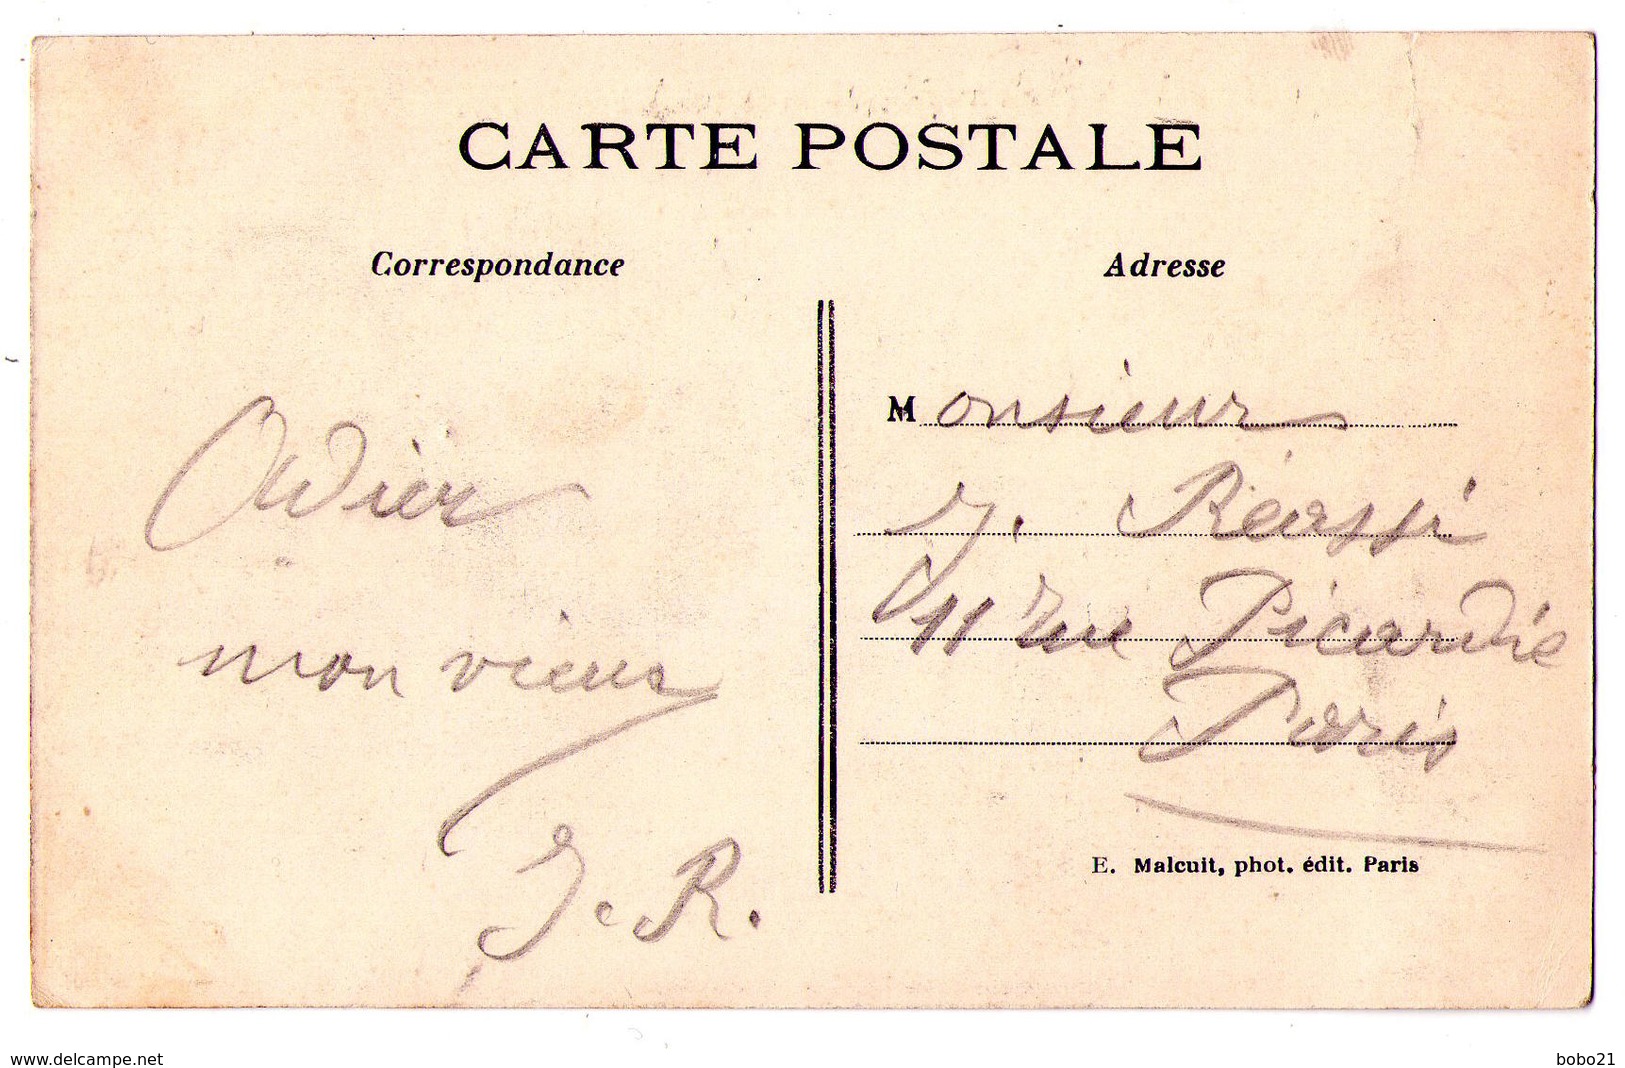 CARTE POSTALE
Correspondance
Adresse
Adier
mon vieux
J. R.
Monsieur
J. Réassi
11 rue Picardie
Paris
E. Malcuit, phot. édit. Paris
www.delcampe.net
bobo21